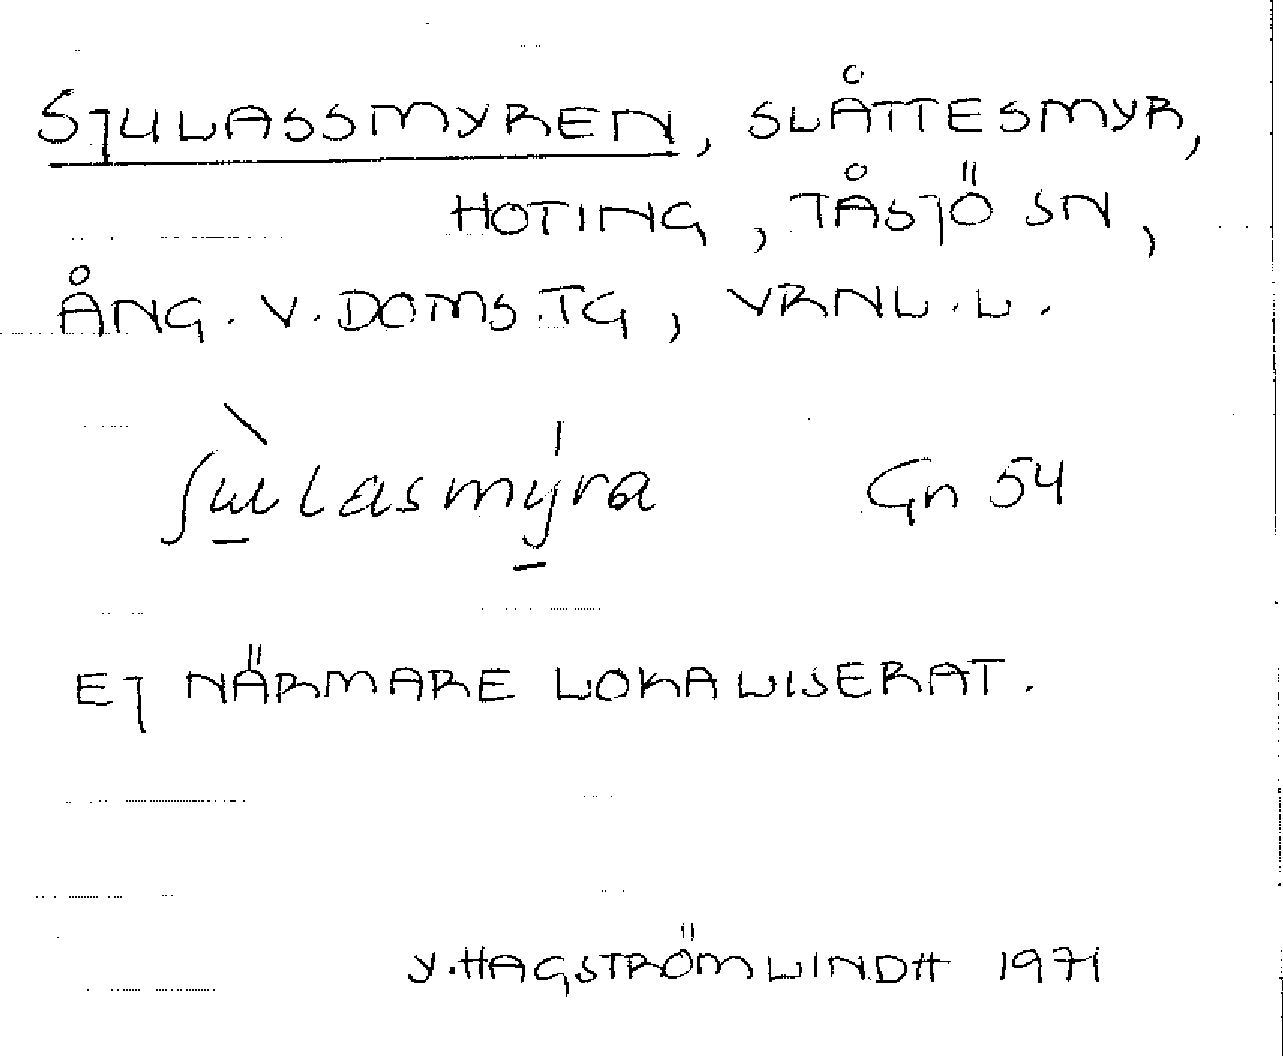 SJULASSMYREN, SLÅTTESMYR,
HOTING, TÅSJÖ SN,
ÅNG. V. DOMS.TG, VRNL.L.
ʃù̲lasmý̲ra Gn 54
EJ NÄRMARE LOKALISERAT.
Y. HAGSTRÖM LINDH 1971